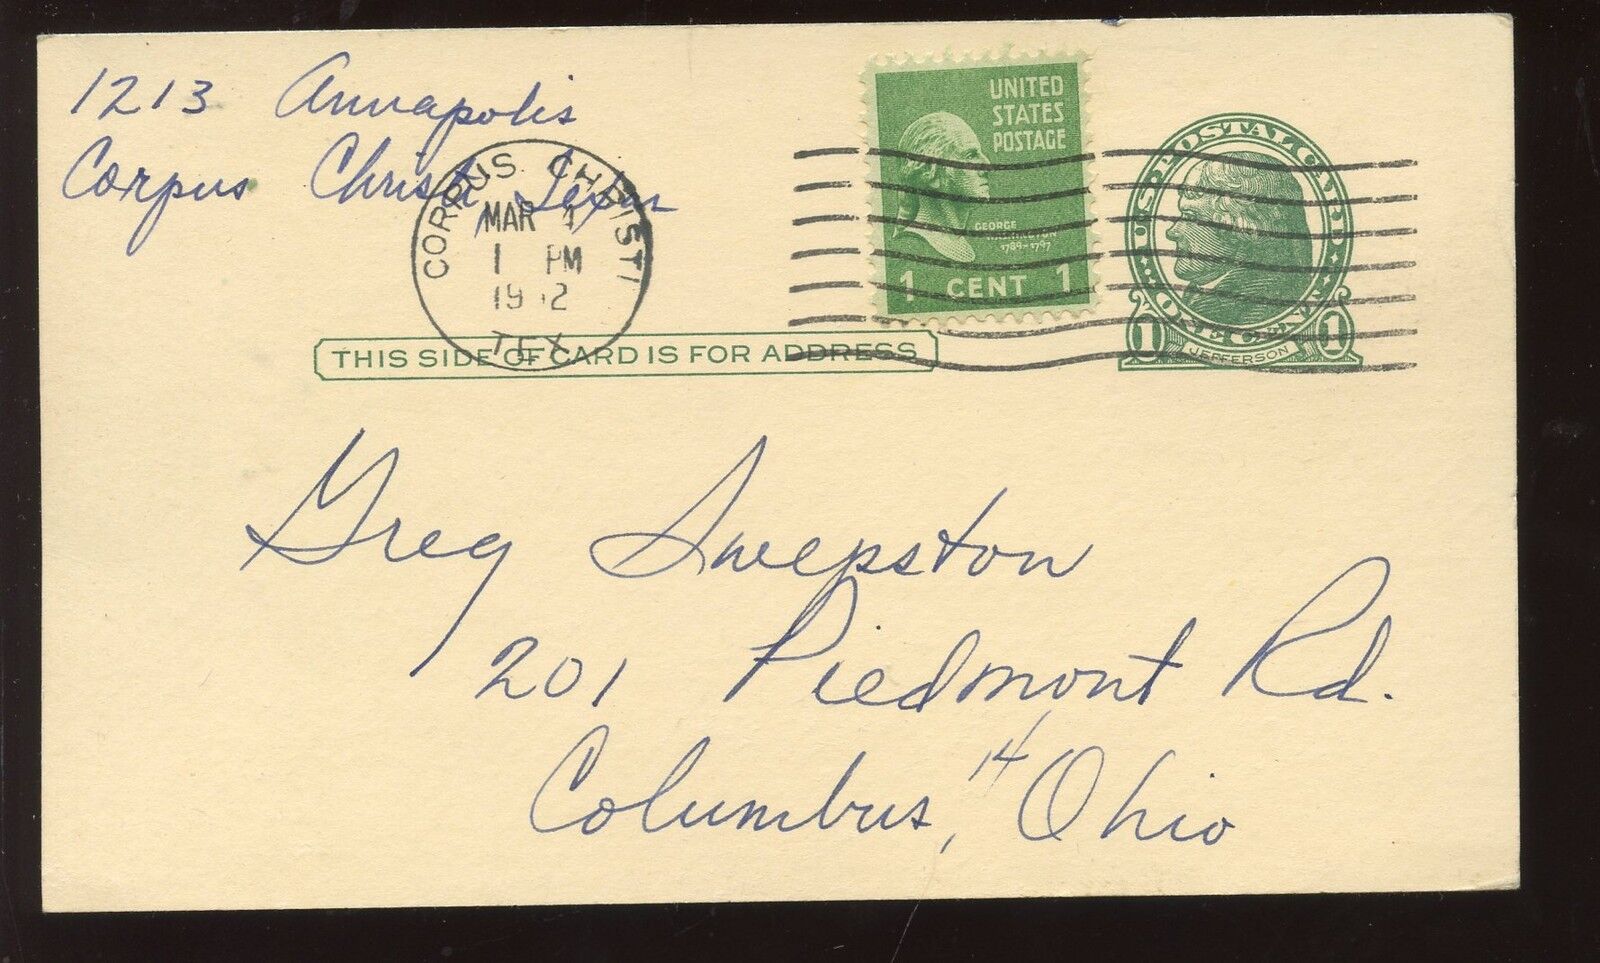 1213 Annapolis
Corpus Christi Texas
CORPUS CHRISTI
MAR
1 PM
TEX
UNITED
STATES
POSTAGE
GEORGE
WASHINGTON
1789-1797
1 CENT 1
U.S. POSTAL CARD
1 ONE CENT 1
JEFFERSON
THIS SIDE OF CARD IS FOR ADDRESS
Greg Swepston
201 Piedmont Rd.
Columbus, 14 Ohio